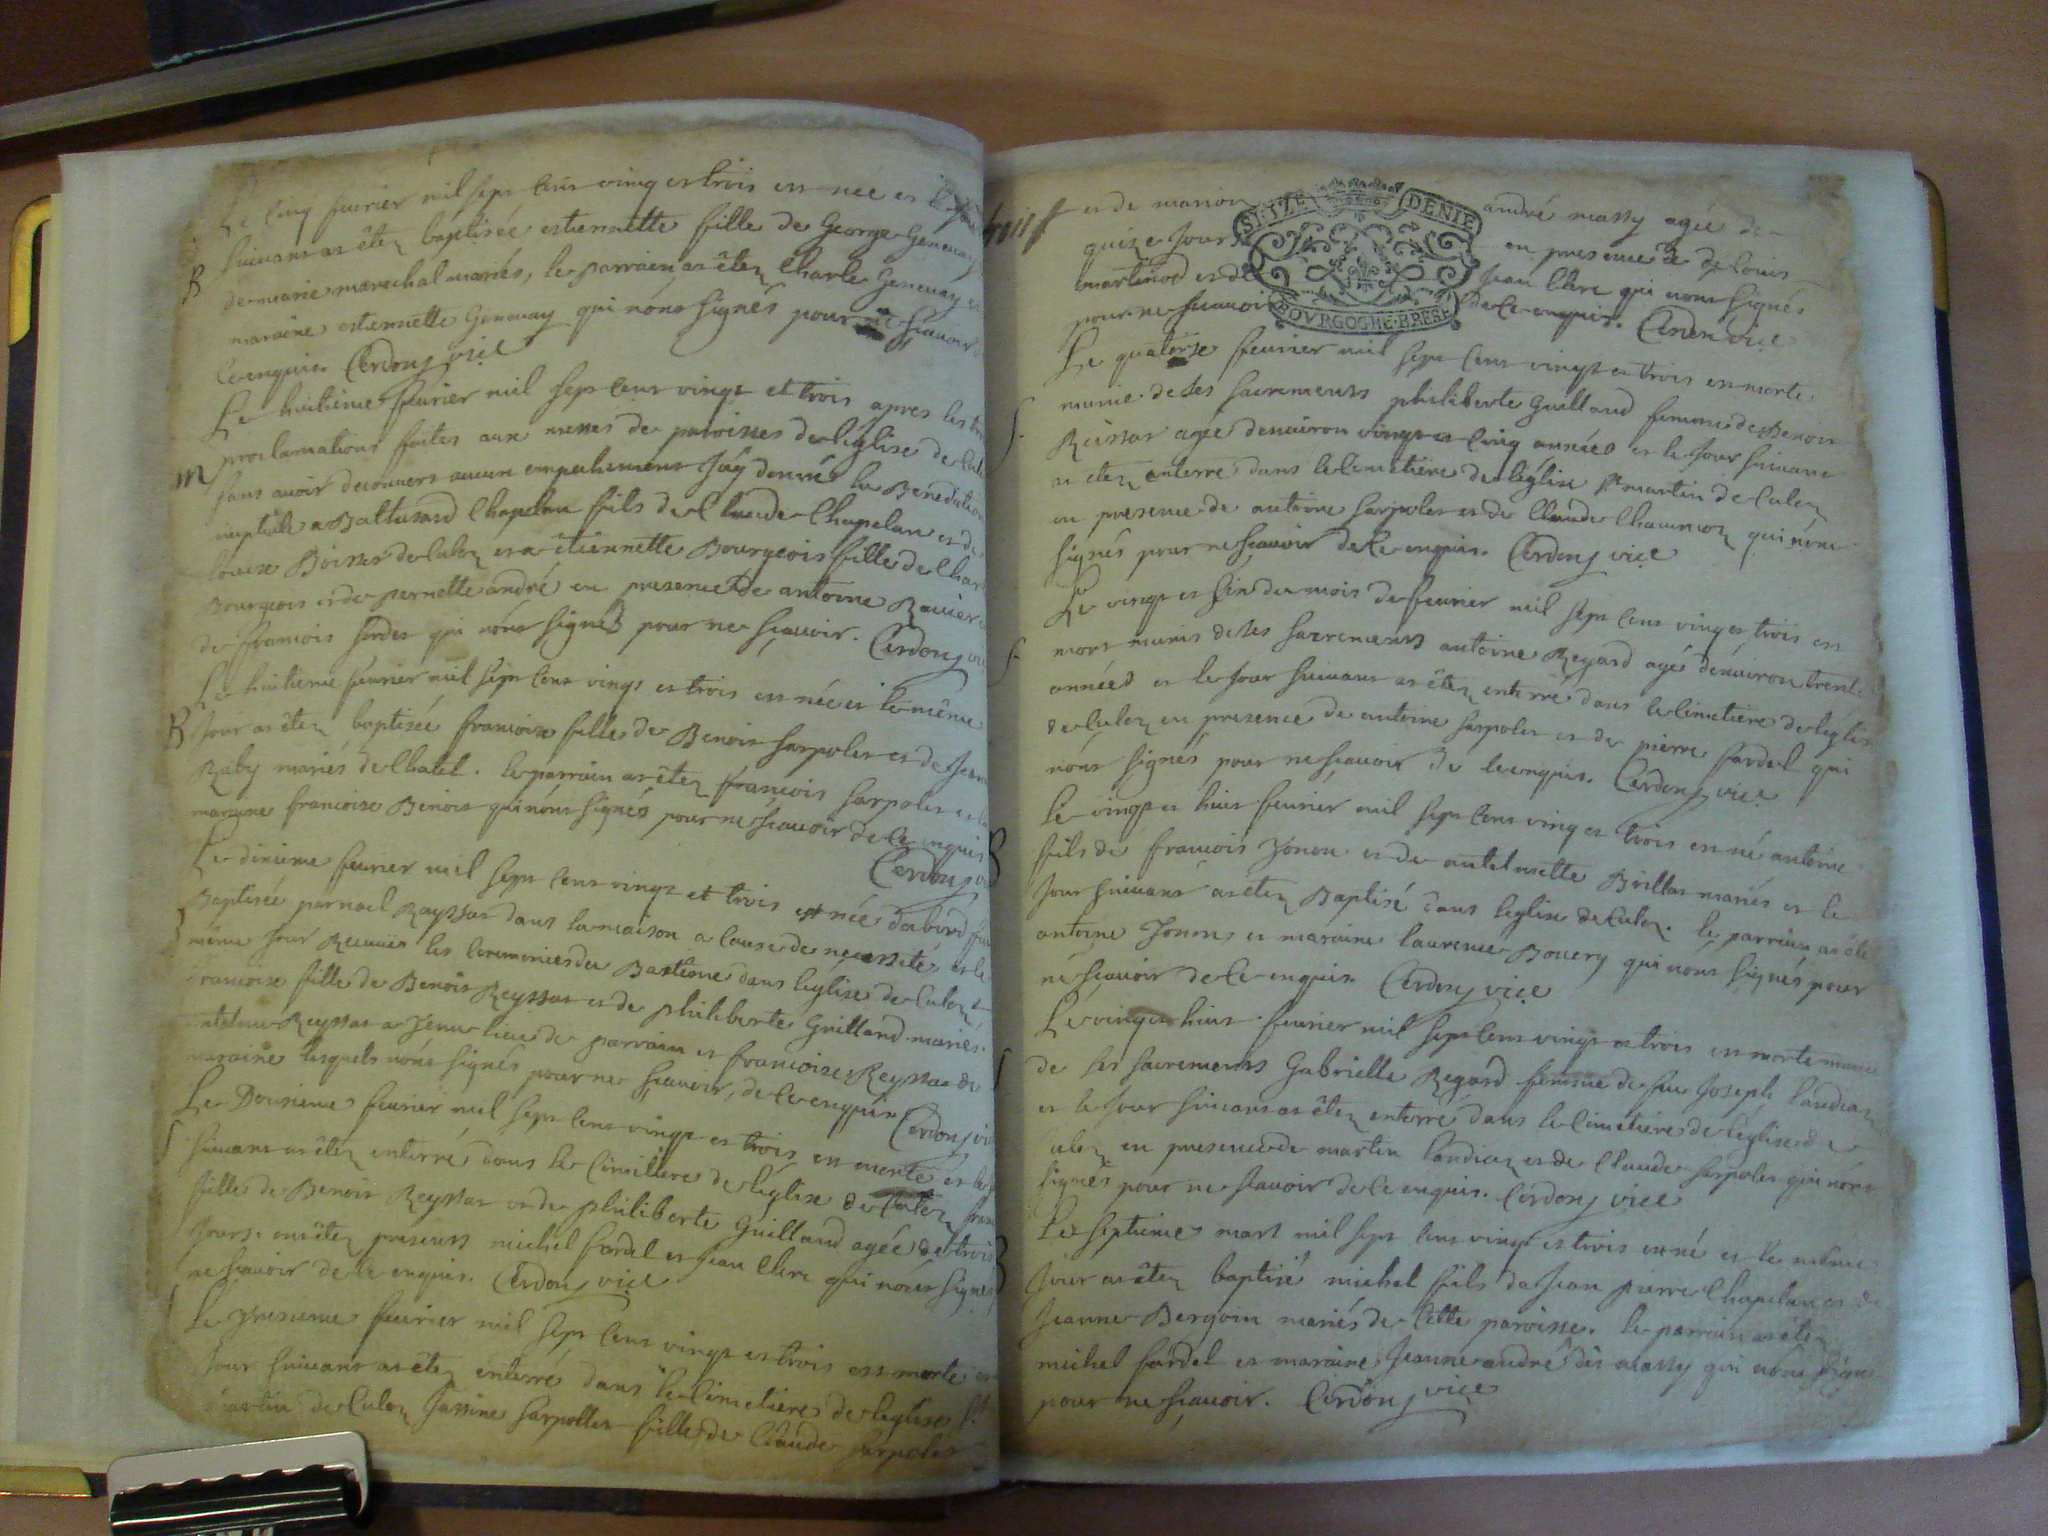 Le cinq feurier mil sept cens vingt et trois est née et le jour
B suivant at êtez baptisée estiennette fille de George Genevay
de marie marechal mariés, le parrain at êtez Charle Genevay et
maraine estiennette Genevay qui nônt signés pour ne sçauoir
ce enquis. Cerdon, vice
Le huitieme feurier mil sept cens vingt et trois apres les
M proclamations faites aux messes de paroisses de l'église de Culoz
sans avoir decouvers aucun empechement J'ay donné la Benediction
nuptiale a Baltusard Chapelau fils de Claude Chapelau et de
Boisser de Culoz et a êtiennette Bourgeois fille de
Bourgeois et de pernette andré en presence de antoine Ravier
de francois serdet qui nônt signés pour ne sçauoir. Cerdon, vice
Le huitieme feurier mil sept cens vingt et trois est née et le même
B Jour at êtez baptisée francoise fille de Benoit serpolet et de
Raby mariés de Chatel. le parrain at êtez francois serpolet et
maraine francoise Benoit qui nônt signés pour ne sçauoir de ce enquis
Cerdon,
Le dixieme feurier mil sept cens vingt et trois est née d'abord
Baptisée par noel Rayssat dans la maison a cause de necessité et le
B même Jour Receuer les ceremonies du Bastême dans l'église de Culoz
francoise fille de Benoit Reyssat et de philiberte Guilland mariés.
Reyssat a tenu lieu de parrain et francoise Reyssat de
maraine lesquels nônt signés pour ne sçauoir, de ce enquis Cerdon, vice
Le Dousieme feurier mil sept cens vingt et trois est morte et le
S suivant at êtez enterré dans le Cimitiere de l'église de Culoz
fille de Benoit Reyssat et de philiberte Guilland agée de trois
Jours. ont êtez presents michel fardel et Jean Clerc qui nônt signés
ne sçauoir de ce enquis. Cerdon, vice
Le tresieme feurier mil sept cens vingt et trois est morte et
Jour suivant at êtez enterré dans le Cimetiere de l'église St
martin de Culoz Jassine serpollet fille de Claude serpolet
et de marion andré massy agee de
quinze Jours en presence de Louis
martinod et de Jean Clerc qui nônt signés
pour ne sçauoir de ce enquis. Cerdon vice
SIXIZE DENIE
BOVRGOGNE·BRESE
Le quatorse feurier mil sept cens vingt et trois est morte
S munie de ses sacrements philiberte Guilland femme de Benoit
Reissat agée denuiron vingt et cinq années et le Jour suivant
at êtez enterré dans le Cimetière de l'église St martin de Culoz
en presence de antoine serpolet et de Claude Chaumon qui nônt
signés pour ne sçauoir de ce enquis. Cerdon, vice
Le vingt et six du mois de feurier mil sept cens vingt et trois est
S mort munis de ses sacrements antoine Regard agé denuiron trente
années et le Jour suivant at êtez enterré dans le Cimetiere de l'églis
de Culoz en presence de antoine serpolet et de pierre fardel qui
nônt signés pour ne sçauoir de ce enquis. Cerdon, vice
Le vingt et huit feurier mil sept cens vingt et trois est né antoine
B fils de francois et de antelmette Brillat mariés et le
Jour suivant at êtez Baptisé dans l'église de Culoz. le parrain at êté
antoine et maraine laurence Bouery qui nônt signés pour
ne sçauoir de ce enquis Cerdon, vice
Le vingt et huit feurier mil sept cens vingt et trois est morte munie
de ses sacrements Gabrielle Regard femme de feu Joseph
et le Jour suivant at êtez enterré dans le Cimetiere de l'église de
Culoz en presence de martin et de Claude serpolet qui nônt
signés pour ne sçauoir de ce enquis. Cerdon, vice
Le septieme mars mil sept cens vingt et trois est né et le même
B Jour at êtez baptisé michel fils de Jean pierre Chapelau et de
Jeanne Bergoin mariés de cette paroisse. le parrain at êtez
michel fardel et maraine Jeanne andré dit massy qui nônt signé
pour ne sçauoir. Cerdon, vice